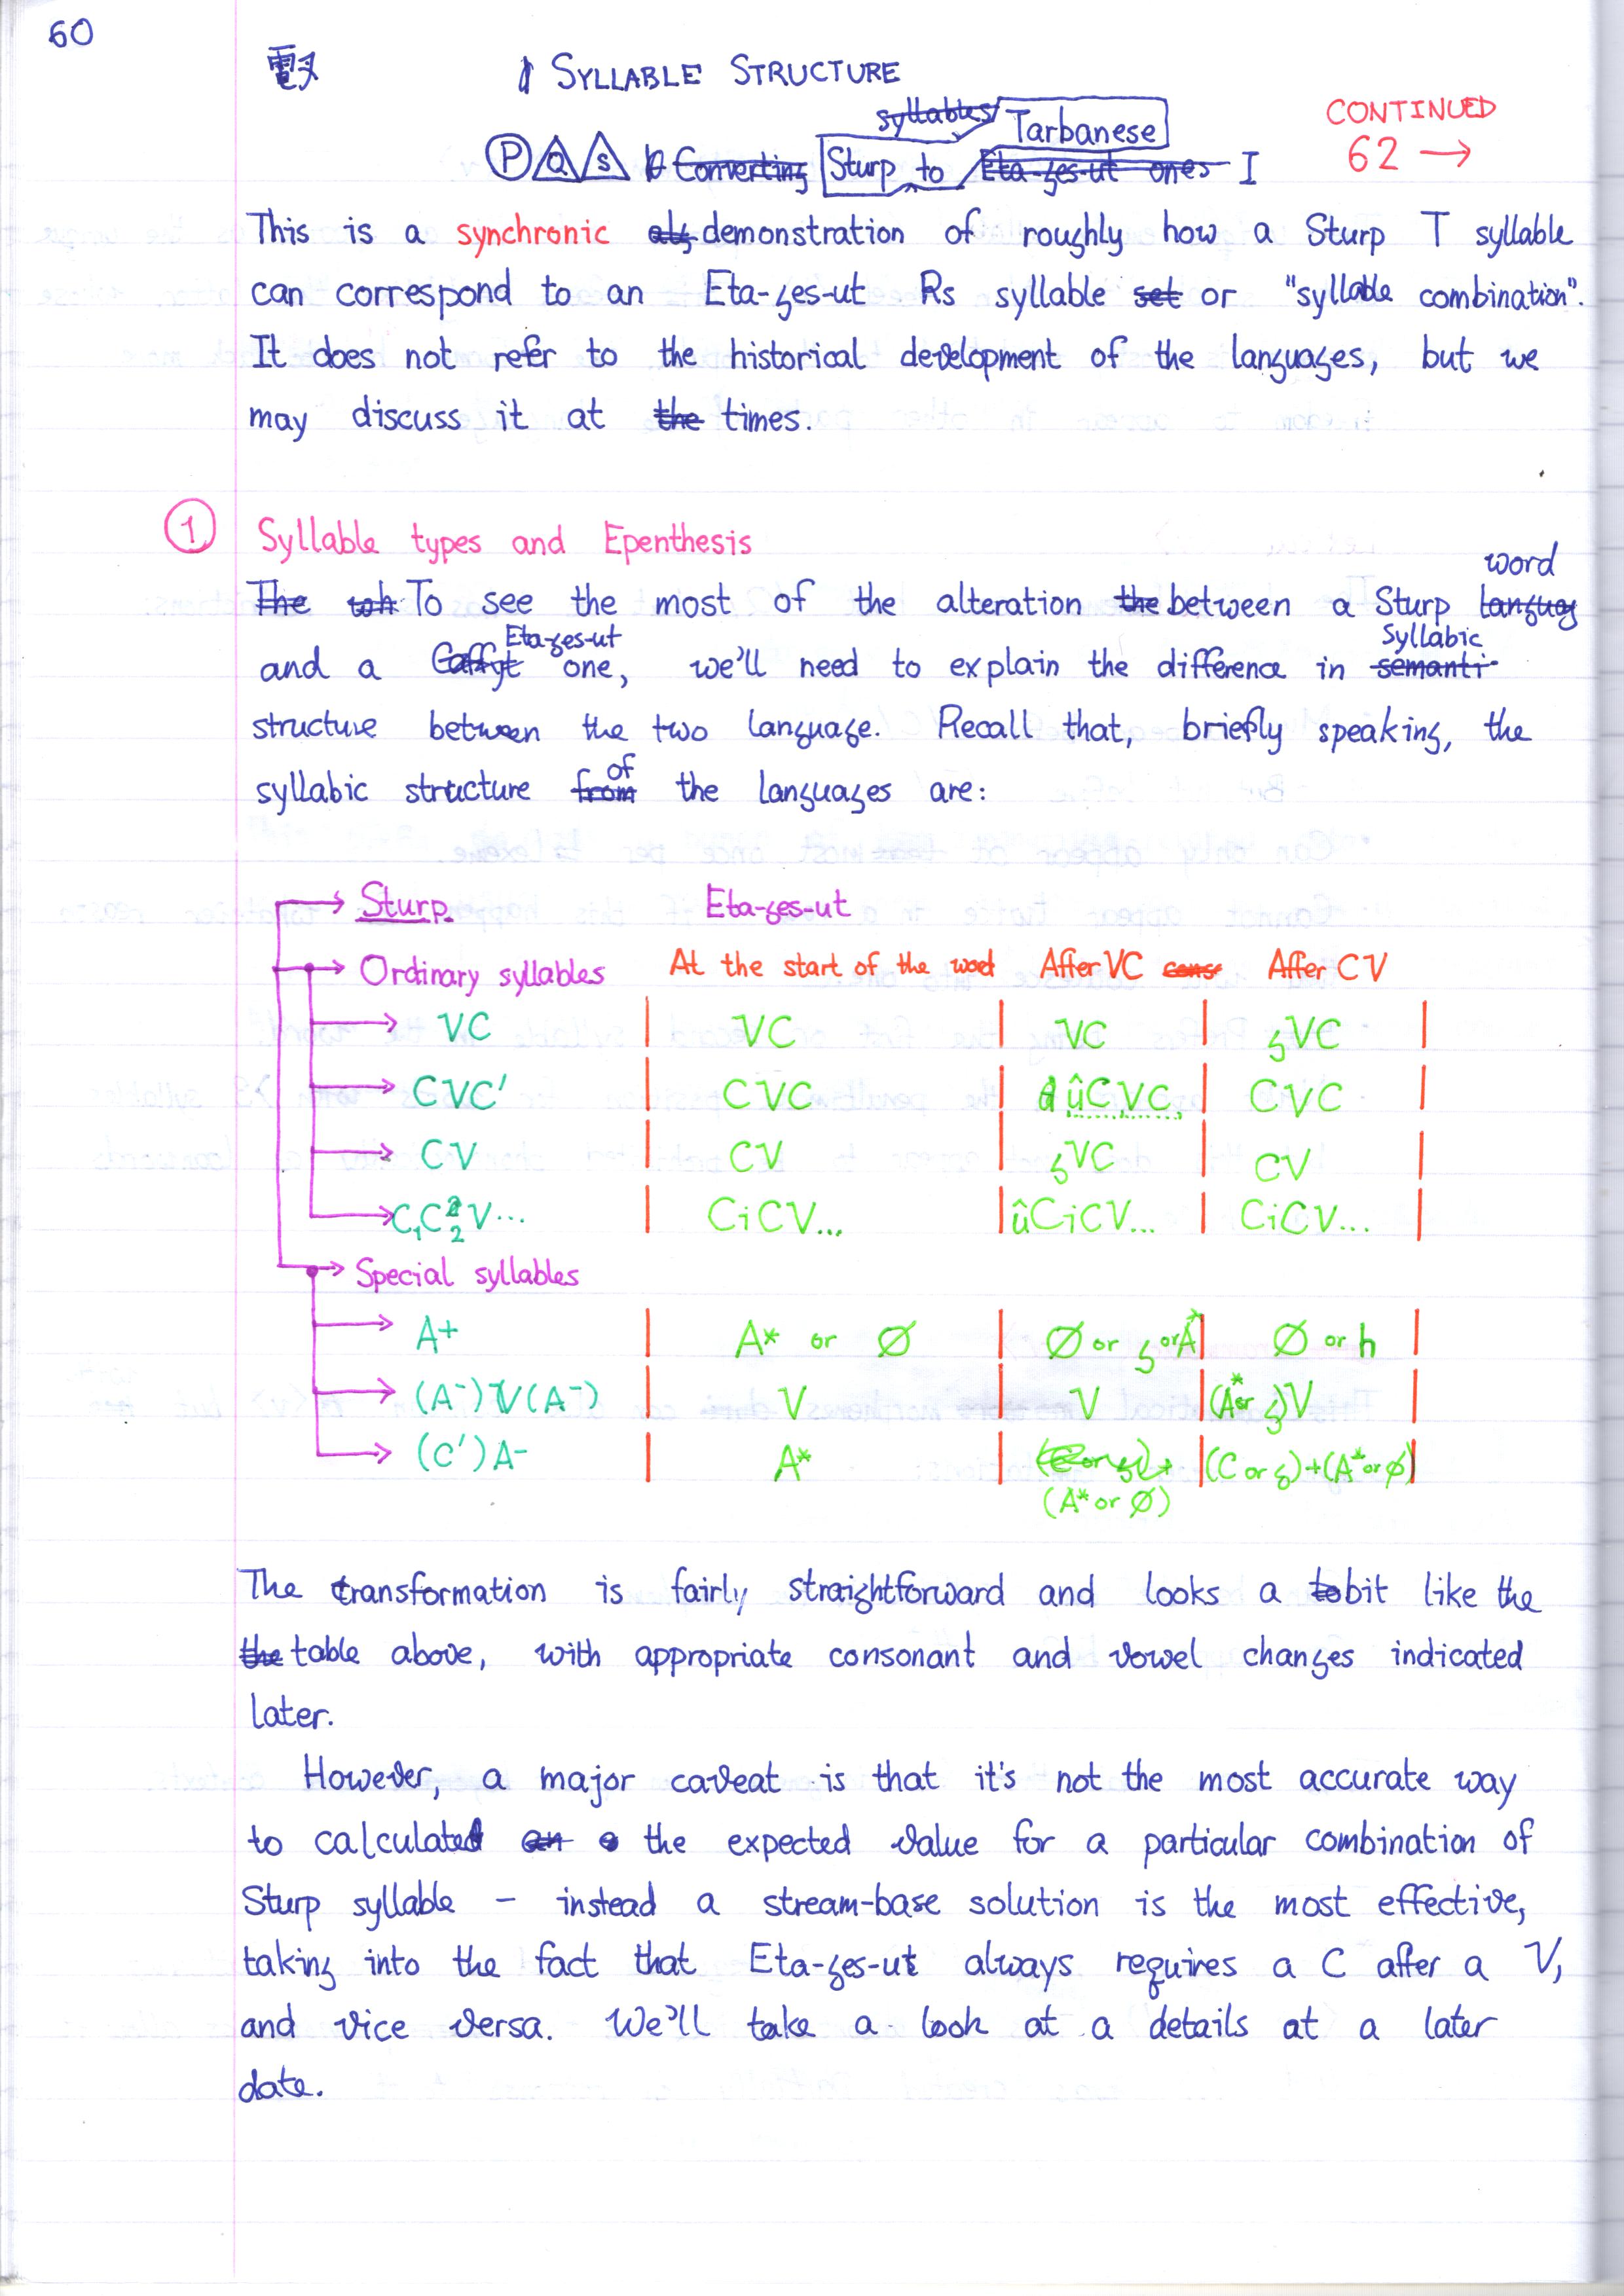 60
SYLLABLE STRUCTURE
CONTINUED
62 →
syllables Tarbanese
P Q S Converting Sturp to Eta-ges-ut ones I
This is a synchronic demonstration of roughly how a Sturp T syllable
can correspond to an Eta-ges-ut Rs syllable set or "syllable combination".
It does not refer to the historical development of the languages, but we
may discuss it at the times.
1 Syllable types and Epenthesis
word
The To see the most of the alteration the between a Sturp languag
Eta-ges-ut Syllabic
and a one, we'll need to explain the difference in semanti-
structure between the two language. Recall that, briefly speaking, the
of
syllabic structure from the languages are:
Sturp Eta-ges-ut
Ordinary syllables At the start of the word After VC cons After CV
VC VC VC ʒVC
CVC' CVC ûCVC CVC
CV CV ʒVC CV
C₁C₂V... CiCV... ûCiCV... CiCV...
Special syllables
A+ A* or Ø Ø or ʒ or A Ø or h
(A⁻)V(A⁻) V V (A* or ʒ)V
(C')A- A* (C or ʒ)+(A* or Ø)
(A* or Ø)
The transformation is fairly straightforward and looks a bit like the
the table above, with appropriate consonant and vowel changes indicated
later.
However, a major caveat is that it's not the most accurate way
to calculated an the expected value for a particular combination of
Sturp syllable – instead a stream-base solution is the most effective,
taking into the fact that Eta-ges-ut always requires a C after a V,
and vice versa. We'll take a look at a details at a later
date.